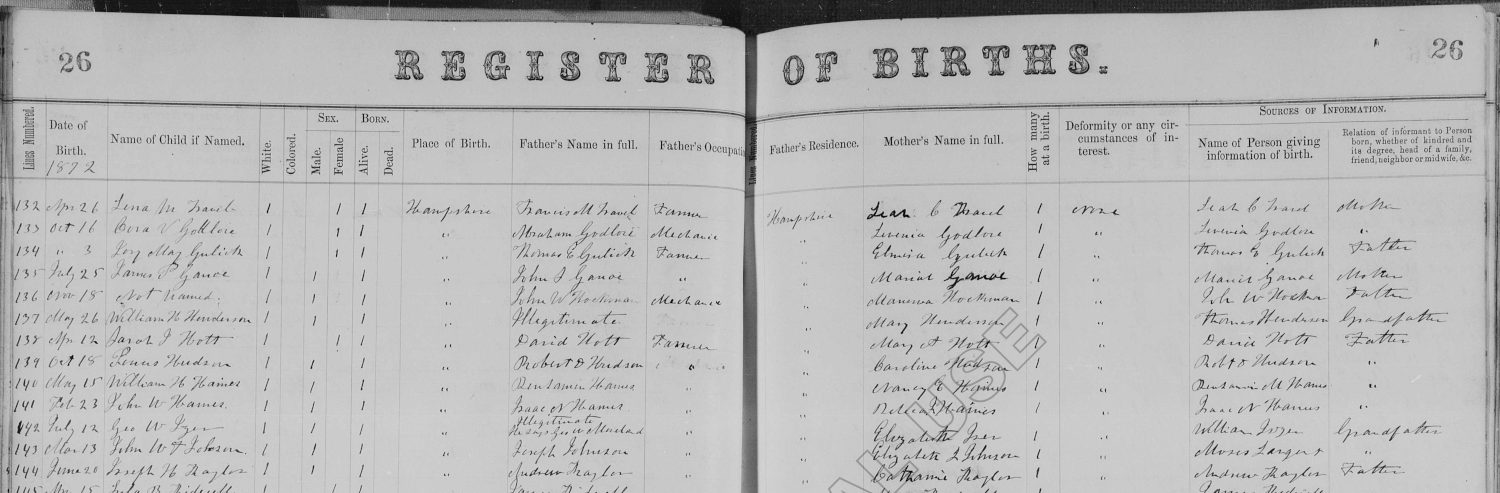 26 REGISTER OF BIRTHS. 26
Lines Numbered.
Date of Birth. 1872
Name of Child if Named.
White.
Colored.
Sex.
Male.
Female
Born.
Alive.
Dead.
Place of Birth.
Father's Name in full.
Father's Occupatio
Lines Numbered.
Father's Residence.
Mother's Name in full.
How many at a birth.
Deformity or any circumstances of interest.
Sources of Information.
Name of Person giving information of birth.
Relation of informant to Person born, whether of kindred and its degree, head of a family, friend, neighbor or midwife, &c.
132 Apr 26 Lena M Travel 1 1 1 Hampshire Francis M Travel Farmer Hampshire Leah C Travel 1 None Leah C Travel Mother
133 Oct 16 Cora V Godlove 1 1 1 " Abraham Godlove Mechanic " Levenia Godlove 1 " Levenia Godlove "
134 " 3 May Gulick 1 1 1 " Thomas E Gulick Farmer " Elmisia Gulick 1 " Thomas E Gulick Father
135 July 25 James P Ganoe 1 1 1 " John J Ganoe " " Ganoe 1 " Ganoe Mother
136 Nov 18 Not Named. 1 1 1 " John W Hockman Mechanic " Manerva Hockman 1 " John W Hockman Father
137 May 26 William H Henderson 1 1 1 " Illegitimate " Mary Henderson 1 " Thomas Henderson Grandfather
138 Apr 12 Sarah J Hott 1 1 1 " David Hott Farmer " Mary A Hott 1 " David Hott Father
139 Oct 18 Hudson 1 1 1 " Robert D Hudson " " Caroline Hudson 1 " Robt D Hudson "
140 May 15 William H Haines 1 1 1 " Benjamen Haines " Nancy E Haines 1 " Benjamin M Haines "
141 Feb 23 John W Haines. 1 1 1 " Isaac N Haines " " Haines 1 " Isaac N Haines "
142 July 12 Geo W Izer 1 1 1 " Illegitimate
He says Geo W Moreland " Elizabeth Iser 1 " William Grandfather
143 Mar 13 John W F Johnson. 1 1 1 " Joseph Johnson " " Elizabeth Johnson 1 " Moses "
144 June 20 Joseph H Kaylor 1 1 1 " Andrew Kaylor " " Catharine Kaylor 1 " Andrew Kaylor Father
145 Apr 15
AL USE